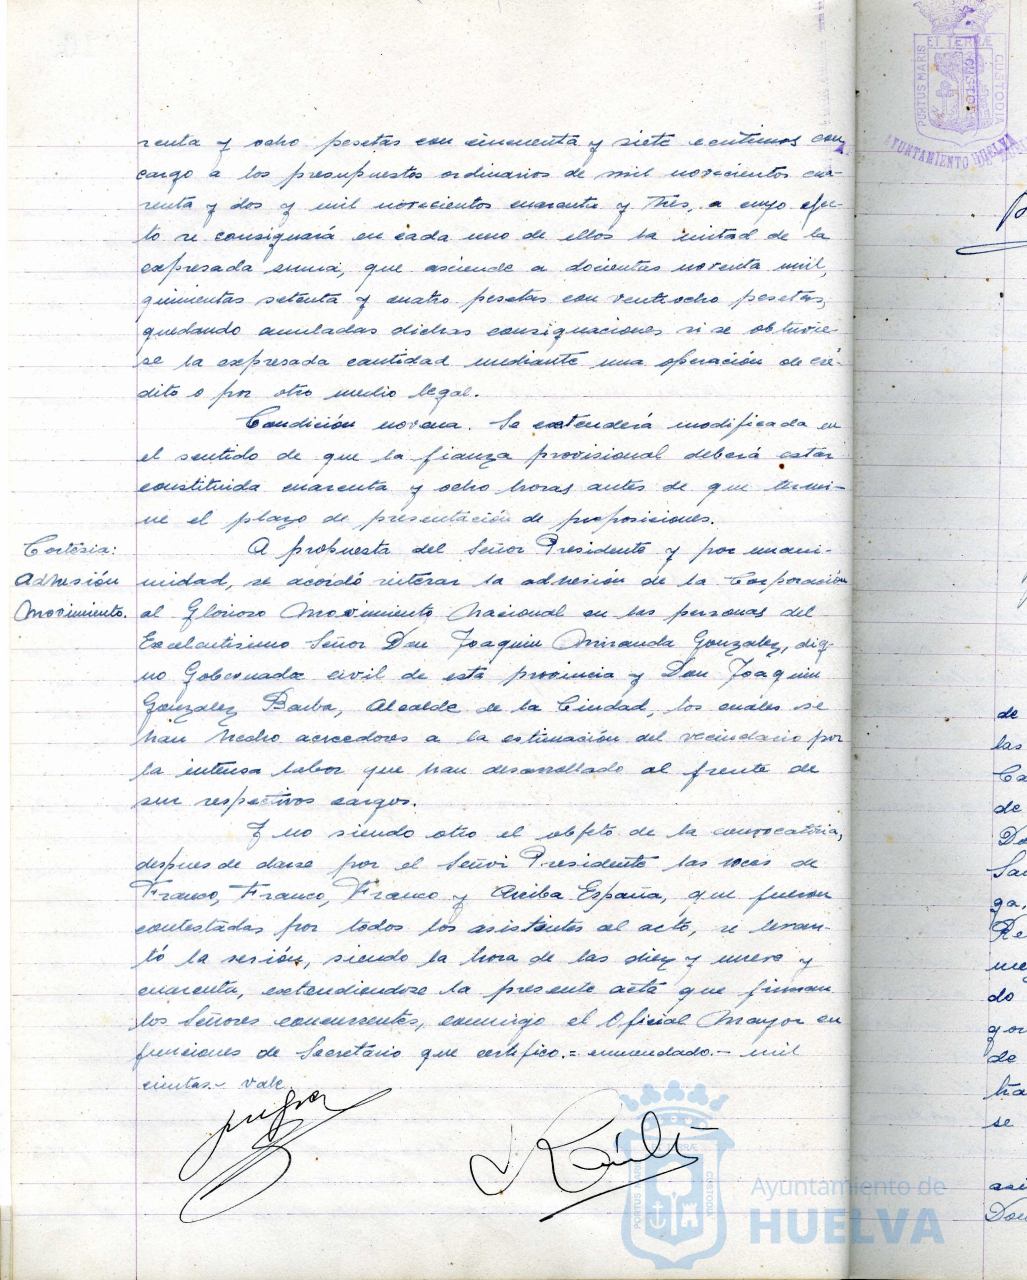 renta y ocho pesetas con cincuenta y siete centimos con
cargo a los presupuestos ordinarios de mil novecientos cua-
renta y dos y mil novecientos cuarenta y tres, a cuyo efec-
to se consignará en cada uno de ellos la mitad de la
expresada suma, que asciende a docientas noventa mil,
quinientas setenta y cuatro pesetas con ventiocho pesetas,
quedando anuladas dichas consignaciones si se obtuvie-
se la expresada cantidad mediante una operación de cré-
dito o por otro medio legal.
Condición novena. Se extenderá modificada en
el sentido de que la fianza provisional deberá estar
constituida cuarenta y ocho horas antes de que termi-
ne el plazo de presentación de proposiciones.
Cortesia:
Adhesión
Movimiento.
A propuesta del Señor Presidente y por unani-
midad, se acordó reiterar la adhesión de la Corporación
al Glorioso Movimiento Nacional en las personas del
Excelentisimo Señor Don Joaquin Miranda Gonzalez, dig-
no Gobernador civil de esta provincia y Don Joaquin
Gonzalez Barba, Alcalde de la Ciudad, los cuales se
han hecho acreedores a la estimación del vecindario por
la intensa labor que han desarrollado al frente de
sus respectivos cargos.
Y no siendo otro el objeto de la convocatoria,
despues de darse por el Señor Presidente las voces de
Franco, Franco, Franco y Arriba España, que fueron
contestadas por todos los asistentes al acto, se levan-
tó la sesión, siendo la hora de las diez y nueve y
cuarenta, extendiendose la presente acta que firman
los Señores concurrentes, conmigo el Oficial Mayor en
funciones de Secretario que certifico.= enmendado.- mil
cientas.- vale
ET TERRÆ
PORTUS MARIS
CUSTODIA
AYUNTAMIENTO HUELVA
de
las
Ca
de
Do
Sa
ga,
Re
me
do
gor
de
ha
se
asi
Don
PORTUS MARIS
CUSTODIA
Ayuntamiento de
HUELVA